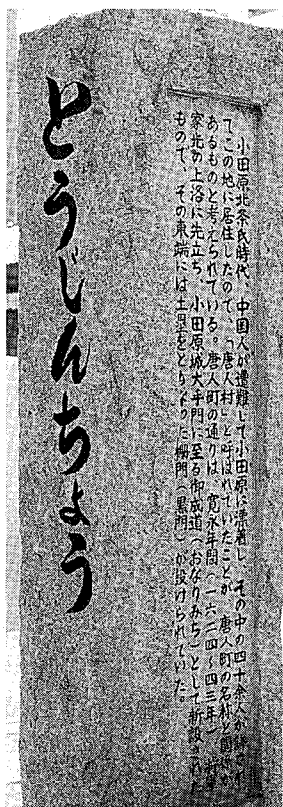 小田原北条氏時代、中国人が遭難して小田原に漂着し、その中の四十余人が
てこの地に居住したので、「唐人村」と呼ばれていたことが、唐人町の名称と
あるものと考えられている。唐人町の通りは、寛永年間(一六二四~四三年)
家光の上洛に先立ち、小田原城大手門に至る御成道(おなりみち)として新設された
もので、その東端には土塁をともなった柵門(黒門)が設けられていた。
とうじんちょう